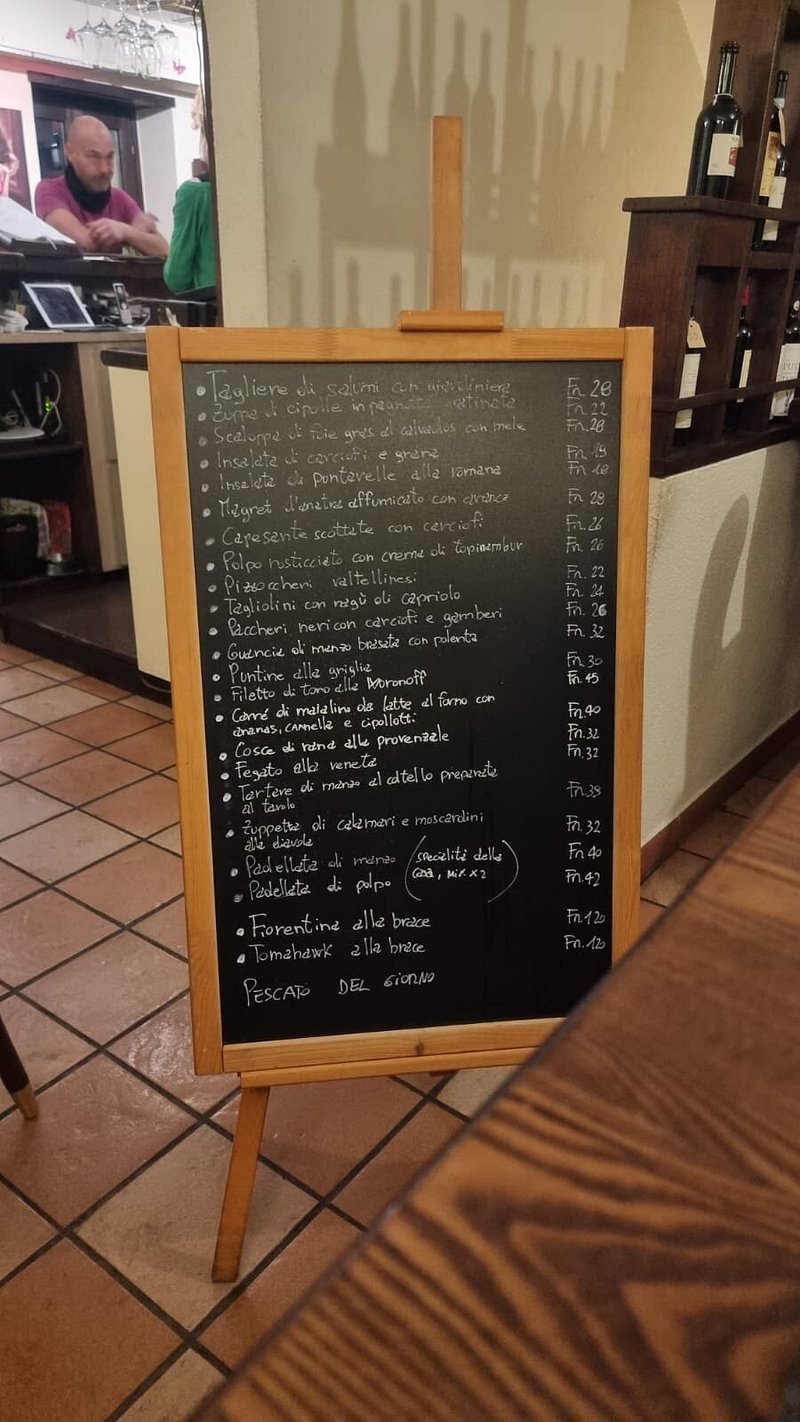 • Tagliere di salumi con giardiniera Fn. 28
• Zuppa di cipolle in pagnotta gratinata Fn. 22
• Scaloppa di foie gras al calvados con mele Fn. 28
• Insalata di carciofi e grana Fn. 19
• Insalata di puntarelle alla romana Fn. 18
• Magret d'anatra affumicato con arancia Fn. 28
• Capesante scottate con carciofi Fn. 26
• Polpo rosticciato con crema di topinambur Fn. 26
• Pizzoccheri valtellinesi Fn. 22
• Tagliolini con ragù di capriolo Fn. 24
• Paccheri neri con carciofi e gamberi Fn. 26
• Guancia di manzo brasata con polenta Fn. 32
• Puntine alla griglia Fn. 30
• Filetto di tono alla Woronoff Fn. 45
• Carré di maialino da latte al forno con
ananas, cannella e cipollotti Fn. 40
• Cosce di rana alla provenzale Fn. 32
• Fegato alla veneta Fn. 32
• Tartare di manzo al coltello preparata
al tavolo Fn. 39
• Zuppetta di calamari e moscardini
alla diavola Fn. 32
• Padellata di manzo (specialità della Fn. 40
• Padellata di polpo casa, min. x 2) Fn. 42
• Fiorentina alla brace Fn. 120
• Tomahawk alla brace Fn. 120
PESCATO DEL GIORNO